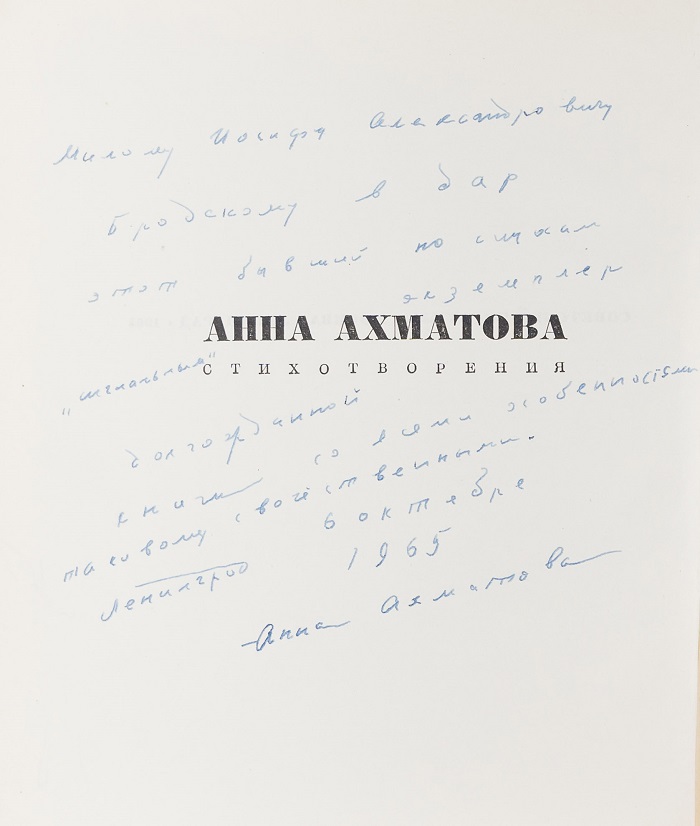 Милому Иосифу Александровичу
Бродскому в дар
этот бывший по слухам
экземпляр
АННА АХМАТОВА
СТИХОТВОРЕНИЯ
„сигнальным“
долгожданной
книги со всеми особенностями
таковому свойственными.
6 октября
Ленинград
1965
Анна Ахматова